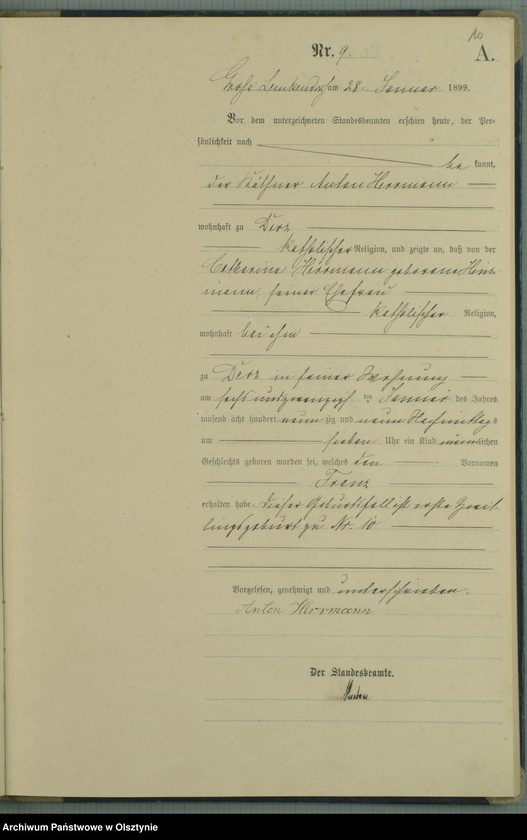 10
Nr. 9.
A.
Groß Lemkendorf am 28. Januar 1899.
Vor dem unterzeichneten Standesbeamten erschien heute, der Per-
sönlichkeit nach
be kannt,
der Käthner Anton Herrmann
wohnhaft zu Derz
katholischer Religion, und zeigte an, daß von der
Catharina Herrmann geborene Hinz-
mann, seiner Ehefrau
katholischer Religion,
wohnhaft bei ihm
zu Derz in seiner Wohnung
am sechs und zwanzigsten Januar des Jahres
tausend acht hundert neun zig und neun Nachmittags
um sieben Uhr ein Kind männlichen
Geschlechts geboren worden sei, welches den Vornamen
Franz
erhalten habe. Dieser Geburtsfall ist erste Zwil-
lingsgeburt zu Nr. 10
Vorgelesen, genehmigt und unterschrieben.
Anton Herrmann
Der Standesbeamte.
Archiwum Państwowe w Olsztynie